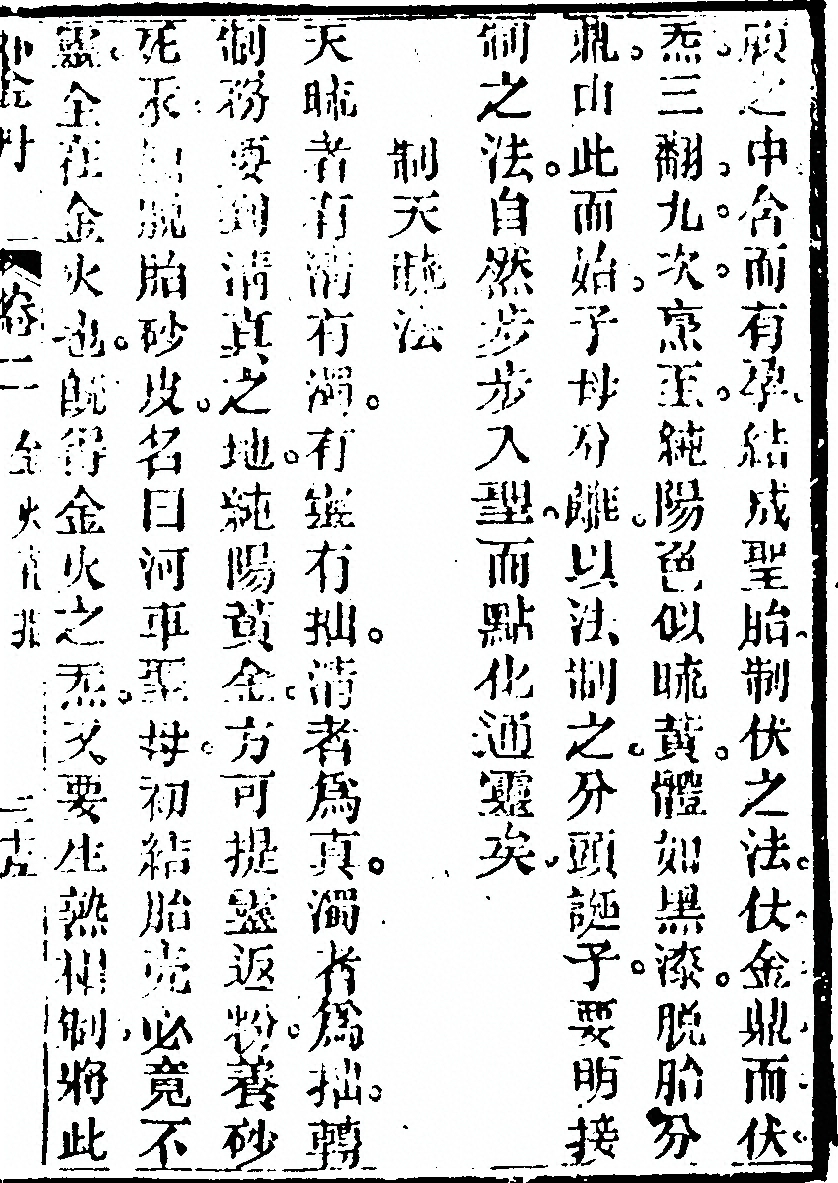 顛之中含而有孕結成聖胎制伏之法仗金鼎而伏
炁三翻九次烹至純陽色似硫黃體如黑漆脫胎分
胤由此而始子母分離以法制之分頭誕子要明接
制之法自然步步入聖而點化通靈矣
制天硫法
天硫者有清有濁有靈有拙清者為真濁者為拙轉
制務要到清真之地純陽黃金方可提靈返粉養砂
死汞 脫胎砂皮名曰河車聖母初結胎完必竟不
靈全在金火也旣得金火之炁又要生熟相制將此
金丹 卷二 金火 三十五